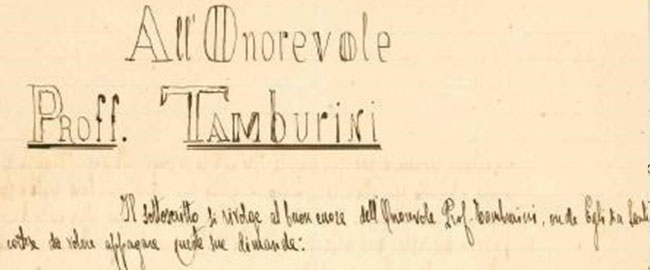 All' Onorevole
Proff. Tamburini
Il sottoscritto si rivolge al buon cuore dell' Onorevole Prof. Tamburini, onde Egli sia tanto
cortese da volere appagare queste sue dimande: